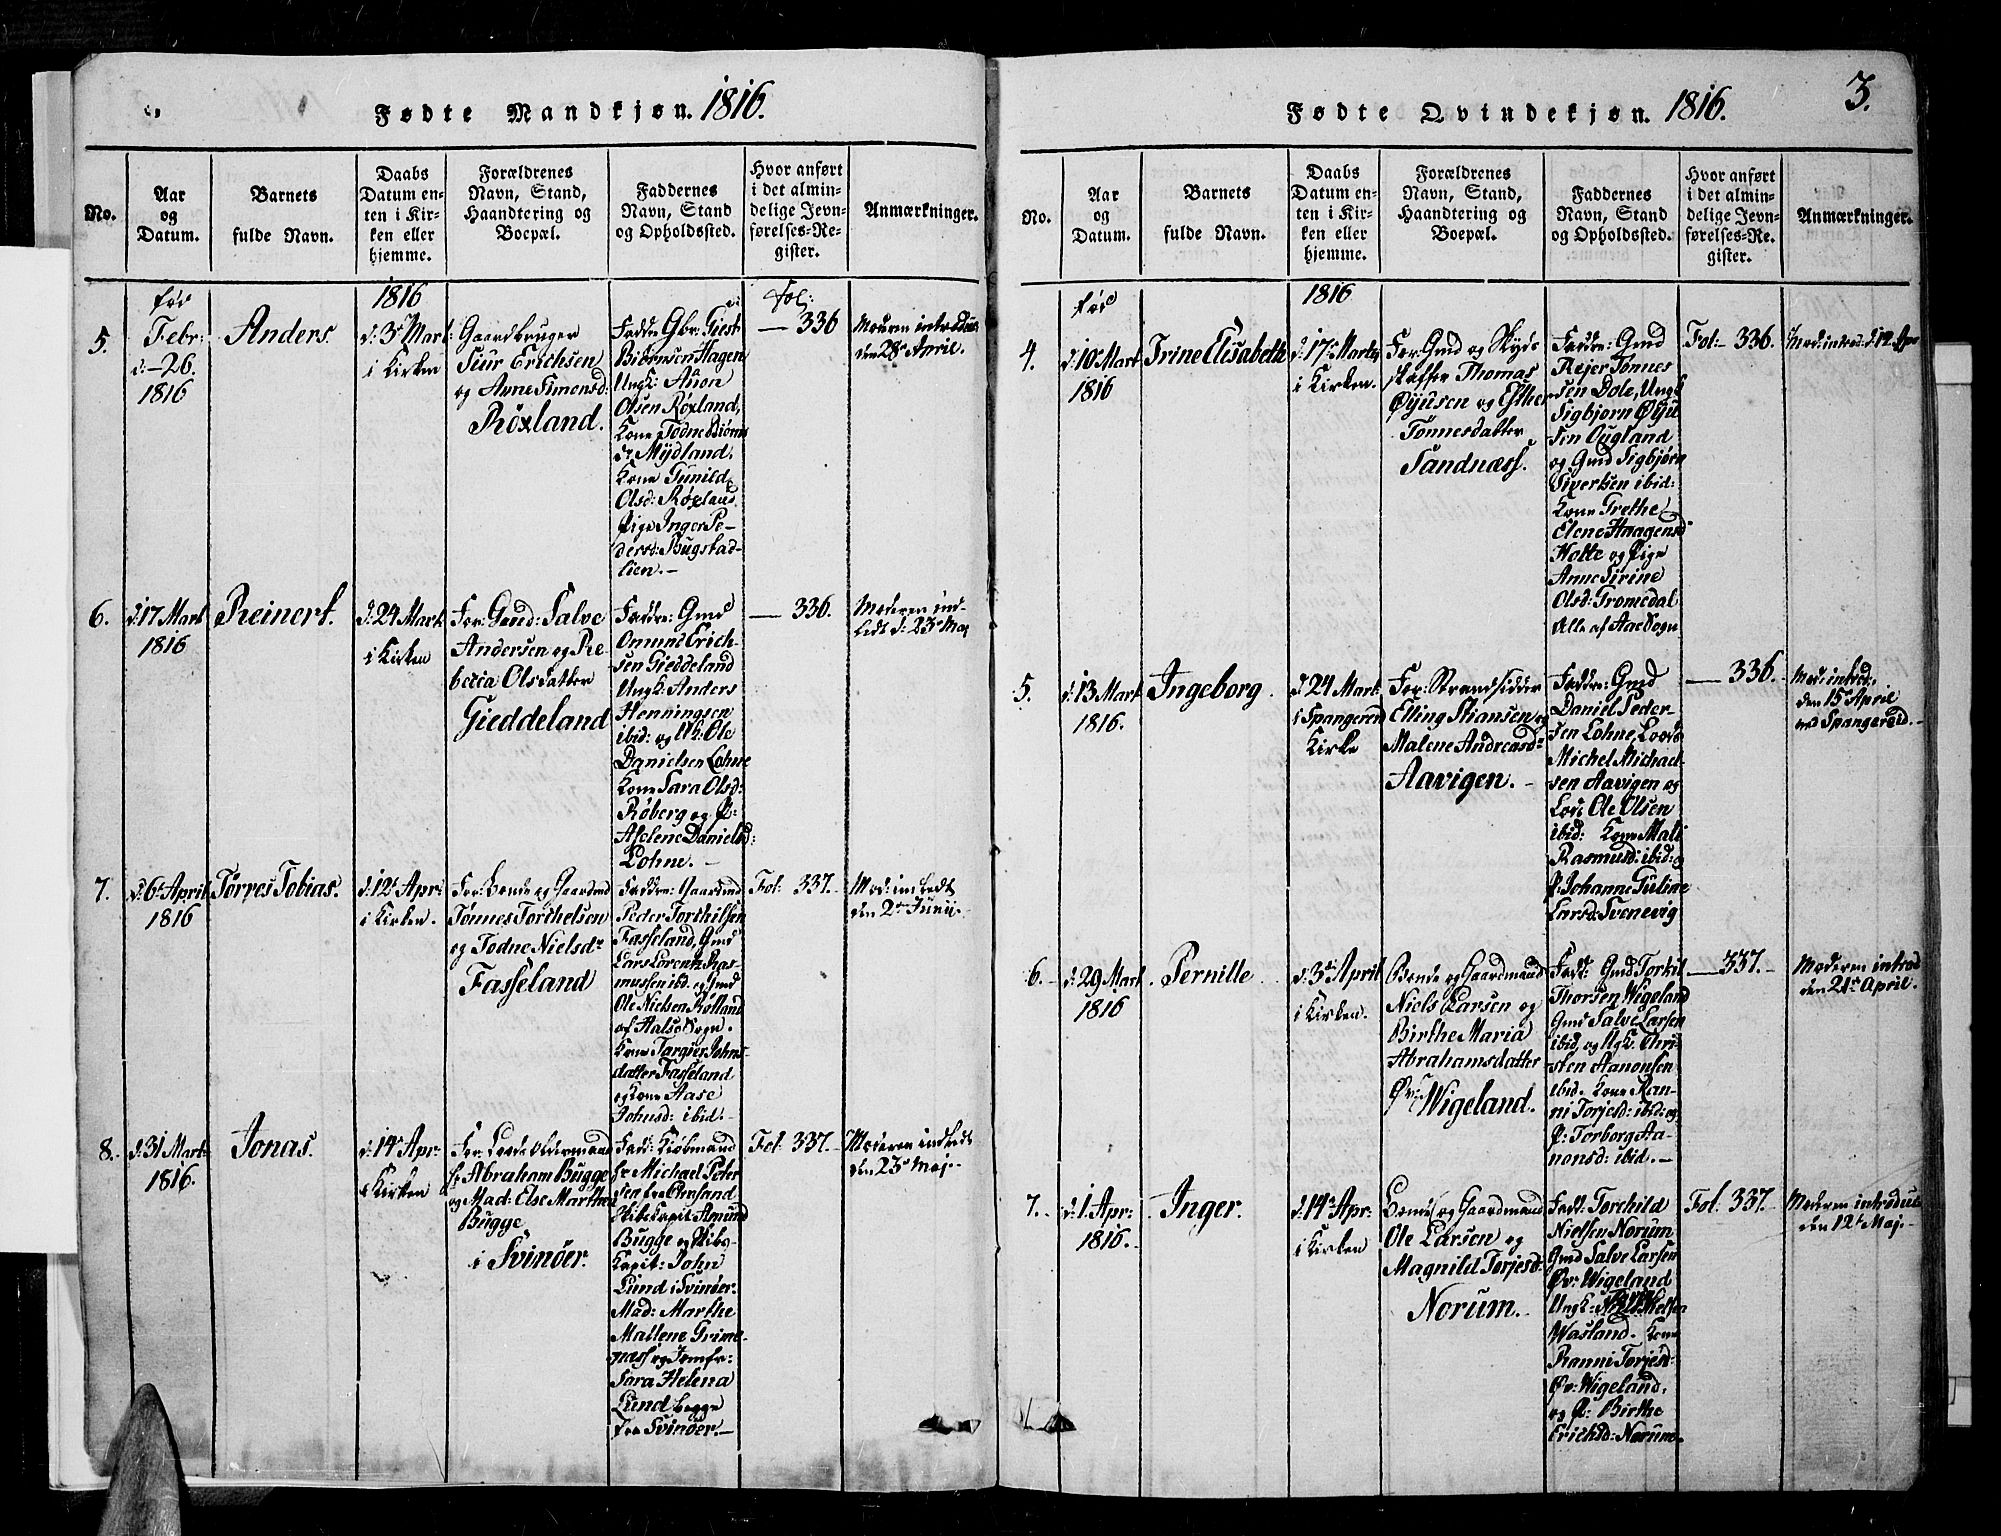 Fødte Mandkjøn. 1816.
No.
Aar
og
Datum.
Barnets
fulde Navn.
Daabs
Datum en-
ten i Kir-
ken eller
hjemme.
Forældrenes
Navn, Stand,
Haandtering og
Boepæl.
Faddernes
Navn, Stand
og Opholdssted.
Hvor anført
i det almin-
delige Jevn-
førelses-Re-
gister.
Anmærkninger.
5.
Febr:
d: 26.
1816
Anders.
1816
d: 3 Mart
i Kirken
Gaardbruger
Siur Erichsen
og Anne Simonsd:
Röxland.
Fadde Gbr: Giest
Biörnsen Hagen
Ungk: Auon
Olsen Röxland,
Kone Todne Biörns
d: Mydland,
Kone Gunild
Olsd: Röxland
Pige Inger Pe-
dersd: Bugstad-
lien. -
Fol:
— 336
den 28 April.
6.
d: 17 Mart
1816
Reinert.
d: 24 Mart
i Kirken
For: Gmd: Salve
Andersen og Re-
becca Olsdatter
Gieddeland
Faddre: Gmd
Ommund Erich-
sen Gieddeland
Ungk: Anders
Henningsen
ibid: og Uk: Ole
Danielsen Lohne
Kone Sara Olsd:
Röberg og P:
Aselene Danielsd:
Lohne. -
— 336.
Moderen ind-
ledt d: 23 Maj
7.
d: 6 April
1816
Törres Tobias.
d: 12 Apr:
i Kirken.
For: Bonde og Gaardmd
Tönnes Torchelsen
og Todne Nielsdr
Fasseland
Faddre: Gaardmd
Peder Torchilsen
Fasseland, Gmd
Lars Lorentz Ras-
mussen ibid. og Gmd
Ole Nielsen Rölland
af Halse Sogn.
Kone Targier Johns-
datter Fasseland
og Kone Aase
Johnsd: ibid. -
Fol: 337.
Mod: indledt
den 2 Junii.
8.
d: 31 Mart:
1816.
Jonas.
d: 14 Apr:
i Kirken
For: Lods Oldermand
Hr Abraham Bugge
og Mad: Else Marthea
Bugge
i Svinöer.
Fadd: Kiöbmand
Hr Michael Peter-
sen fra Chrsand
Skibs Kapit Amund
Bugge og Skibs-
Kapit: John
Lund i Svinöer.
Mad: Marthe
Mallene Grime-
næss og Jomfr:
Sara Helena
Lund begge
fra Svinöer. -
Fol: 337.
Moderen indledt
den 23 Maj.
Fødte Qvindekjøn. 1816.
3.
No.
Aar
og
Datum.
Barnets
fulde Navn.
Daabs
Datum en-
ten i Kir-
ken eller
hjemme.
Forældrenes
Navn, Stand,
Haandtering og
Boepæl.
Faddernes
Navn, Stand
og Opholdssted.
Hvor anført
i det almin-
delige Jevn-
førelses-Re-
gister.
Anmærkninger.
4.
d: 10 Mart
1816
Trine Elisabeth
1816
d: 17 Martij
i Kirken.
For: Gmd og Skyds
skaffer Thomas
Öyusen og Esther
Tönnesdatter
Sandnæss.
Faddre: Gmd
Rejer Tönnes
sen Dole, Ungk
Sigbjørn Öyu
sen Ougland
og Gmd Sigbjörn
Sivertsen ibid:
Kone Grethe
Elene Haagensd
Holte og Pige
Anne Sirine
Olsd: Tromedal
Alle af Aae Sogn
Fol: 336.
Mod: introd: d: 12 Apr
5.
d: 13 Mart
1816.
Ingeborg.
d: 24 Mart.
i Spangereid
Kirke
For: Strandsidder
Elling Stiansen og
Malene Andreasdr
Aavigen. -
Faddre: Gmd
Daniel Peder-
sen Lohne, Lods
Michel Michael
sen Aavigen og
Lods Ole Olsen
ibid: Kone Mali
Rasmusd: ibid: og
P: Johanne Guline
Larsd: Svenevig
— 336.
Mod: introd.
den 15 April
ved Spangereid. -
6.
d: 29 Mart
1816
Pernille
d: 3 April
i Kirken.
Bonde og Gaardmand
Niels Larsen og
Birthe Maria
Abrahamsdatter
Øv: Wigeland.
Fadd: Gmd Torkil
Thorsen Wigeland
Gmd Salve Larsen
ibid, og Ugk. Chri-
sten Aanonsen
ibid. Kone Ran-
ni Torjesd: ibid: og
P: Torborg Aa-
nonsd: ibid. -
— 337.
Moderen introd
den 21 April.
7.
d: 1 Apr:
1816.
Inger.
d: 14 Apr:
i Kirken
Bonde og Gaardmand
Ole Larsen og
Magnild Torjesd:
Norum.
Fadd: Torchild
Nielsen Norum
Gmd Salve Larsen
Øv: Wigeland
Ungk:
Wasland. Kone
Ranni Torjesd:
Øv: Wigeland,
og P: Birthe
Erichsd: Norum.
Fol. 337.
Moderen introduc
den 12 Maj. -